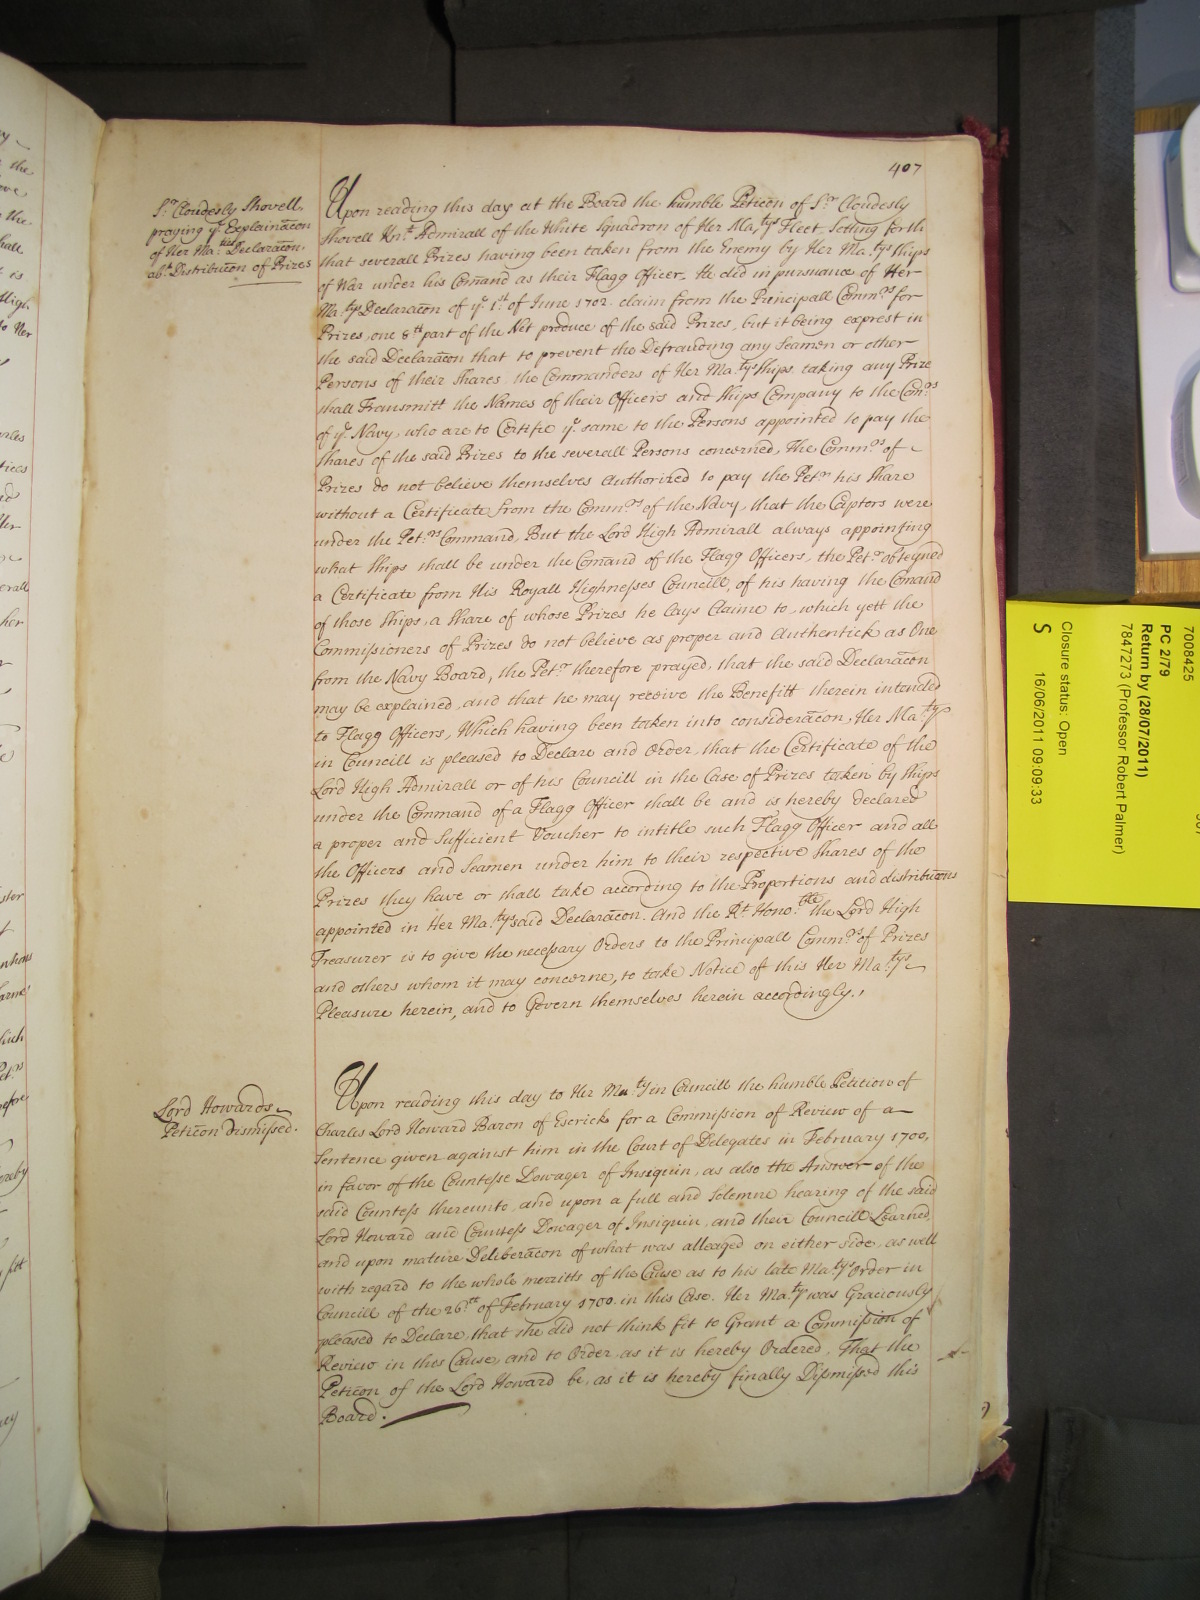 407
Sr. Cloudesly Shovell
praying ye. Explainacon
of Her Mats. Declaracon
abt. Distribucon of Prizes
Upon reading this day at the Board the humble Peticon of Sr. Cloudesly
Shovell Knt. Admirall of the White Squadron of Her Matys Fleet, Setting forth
that severall Prizes having been taken from the Enemy by Her Matys Ships
of War under his Comand as their Flagg Officer, He did in pursuance of Her
Matys Declaracon of ye. 1st of June 1702. claim from the Principall Commrs. for
Prizes, one 8th part of the Net produce of the said Prizes, but it being exprest in
the said Declaracon that to prevent the Defrauding any Seamen or other
Persons of their Shares, the Commanders of Her Matys Ships, taking any Prize
shall Transmitt the Names of their Officers and Ships Company to the Comrs
of ye. Navy, who are to Certifie ye. same to the Persons appointed to pay the
Shares of the said Prizes to the severall Persons concerned, The Commrs. of
Prizes do not believe themselves Authorized to pay the Petr. his Share
without a Certificate from the Commrs. of the Navy, that the Captors were
under the Petrs. Command, But the Lord High Admirall always appointing
what Ships shall be under the Comand of the Flagg Officers, the Petr. obteyned
a Certificate from His Royall Highnesses Councill, of his having the Comand
of those Ships, a Share of whose Prizes he Lays Claime to, which yett the
Commissioners of Prizes do not believe as proper and Authentick as One
from the Navy Board, the Petr. therefore prayed, that the said Declaracon
may be explained, and that he may receive the Benefitt therein intended
to Flagg Officers, Which having been taken into consideracon, Her Maty
in Councill is pleased to Declare and Order, that the Certificate of the
Lord High Admirall or of his Councill in the Case of Prizes taken by Ships
under the Command of a Flagg Officer shall be and is hereby declared
a proper and Sufficient Voucher to intitle such Flagg Officer and all
the Officers and Seamen under him to their respective Shares of the
Prizes they have or shall take according to the Proportions and distribucons
appointed in Her Matys said Declaracon. And the Rt. Honoble. the Lord High
Treasurer is to give the necessary Orders to the Principall Commrs. of Prizes
and others whom it may concerne, to take Notice of this Her Matys
Pleasure herein, and to Govern themselves herein accordingly.,
Lord Howards
Peticon Dismissed.
Upon reading this day to Her Maty in Councill the humble Petition of
Charles Lord Howard Baron of Escrick for a Commission of Review of a
Sentence given against him in the Court of Delegates in February 1700,
in favor of the Countesse Dowager of Insiquin, as also the Answer of the
said Countess thereunto, and upon a full and Solemne hearing of the said
Lord Howard and Countess Dowager of Insiquin, and their Councill Learned,
and upon mature Deliberacon of what was alleaged on either side, as well
with regard to the whole merritts of the Cause as to his late Matys Order in
Councill of the 26th of February 1700. in this Case. Her Maty was Graciously
pleased to Declare, that she did not think fit to Grant a Commission of
Review in this Cause, and to Order, as it is hereby Ordered, That the
Peticon of the Lord Howard be, as it is hereby finally Dismissed this
Board.
7008425
PC 2/79
Return by (28/07/2011)
7847273 (Professor Robert Palmer)
Closure status: Open
S 16/06/2011 09:09:33